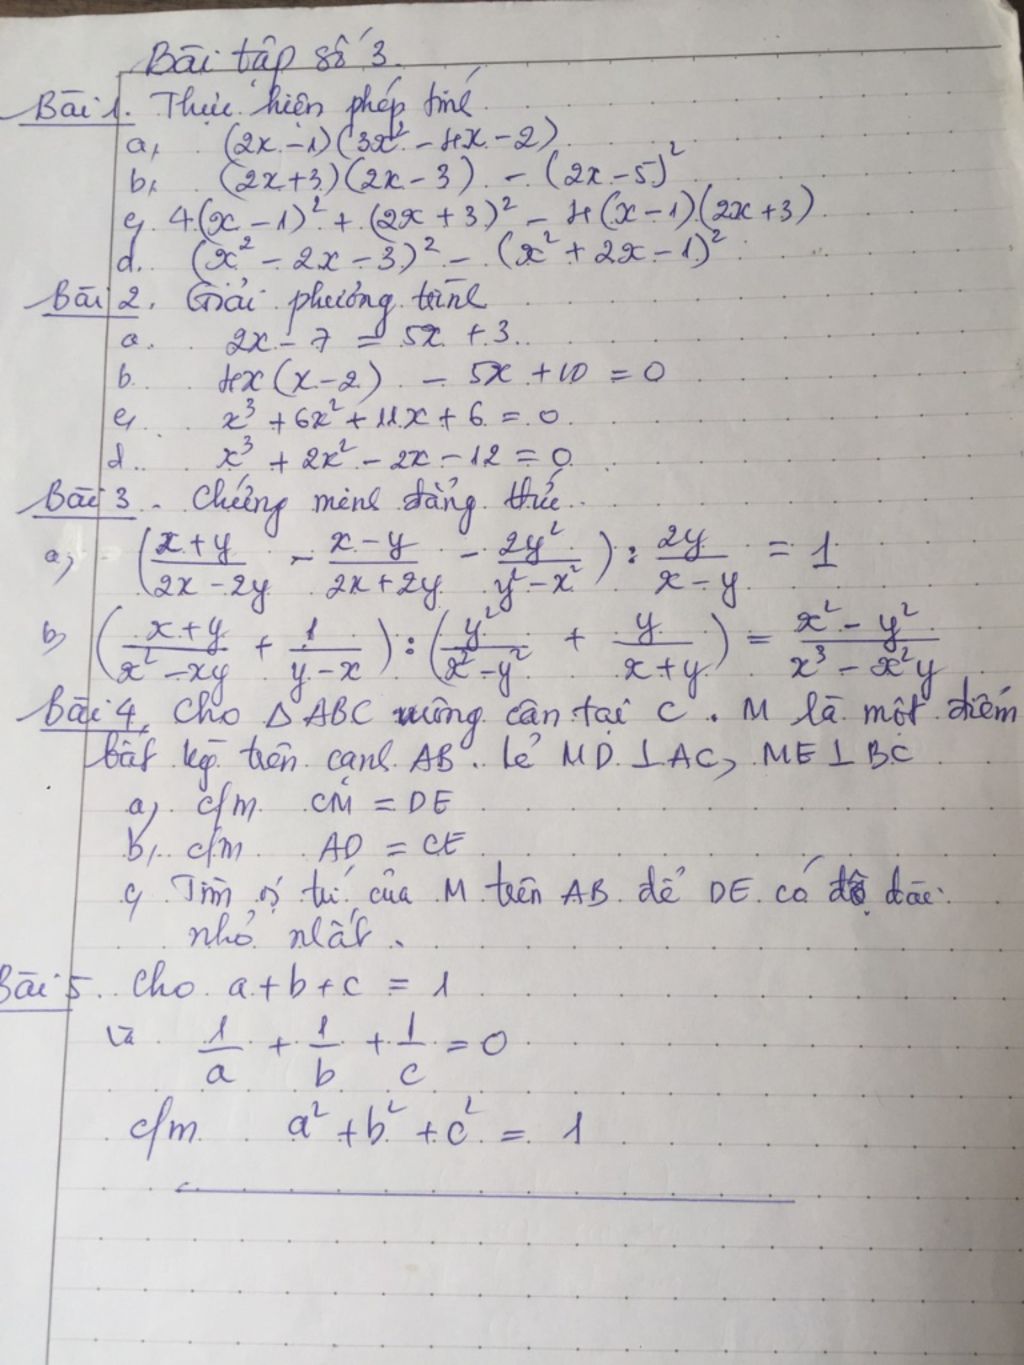 Bài tập số 3.
Bài 1. Thực hiện phép tính
a, (2x - 1)(3x² - 4x - 2)
b, (2x+3)(2x-3) - (2x-5)²
c, 4(x-1)² + (2x+3)² - 4(x-1)(2x+3)
d. (x² - 2x - 3)² - (x² + 2x - 1)²
Bài 2. Giải phương trình
a. 2x - 7 = 5x + 3.
b. 4x(x-2) - 5x + 10 = 0
c, x³ + 6x² + 11x + 6 = 0
d. x³ + 2x² - 2x - 12 = 0
Bài 3. Chứng minh đẳng thức
a, ((x+y)/(2x-2y) - (x-y)/(2x+2y) - 2y²/(y²-x²)) : 2y/(x-y) = 1
b, ((x+y)/(x²-xy) + 1/(y-x)) : (y²/(x²-y²) + y/(x+y)) = (x²-y²)/(x³-x²y)
Bài 4. Cho △ABC vuông cân tại C. M là một điểm
bất kỳ trên cạnh AB. kẻ MD ⊥ AC, ME ⊥ BC
a, c/m CM = DE
b, c/m AD = CE
c, Tìm vị trí của M trên AB để DE có độ dài
nhỏ nhất.
Bài 5. Cho a+b+c = 1
Và 1/a + 1/b + 1/c = 0
c/m a² + b² + c² = 1